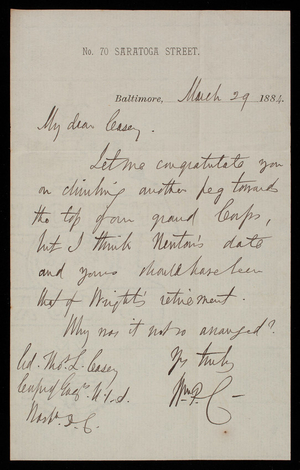 No. 70 SARATOGA STREET.
Baltimore, March 29 1884.
My dear Casey.
Let me congratulate you
on climbing another peg towards
the top of our grand Corps,
but I think Newton's date
and yours should have been
that of Wright's retirement.
Why was it not so arranged?
Col. Thos. L. Casey
Corps of Engrs. U.S.A.
Washn. D.C.
Yrs truly
Wm. P. C